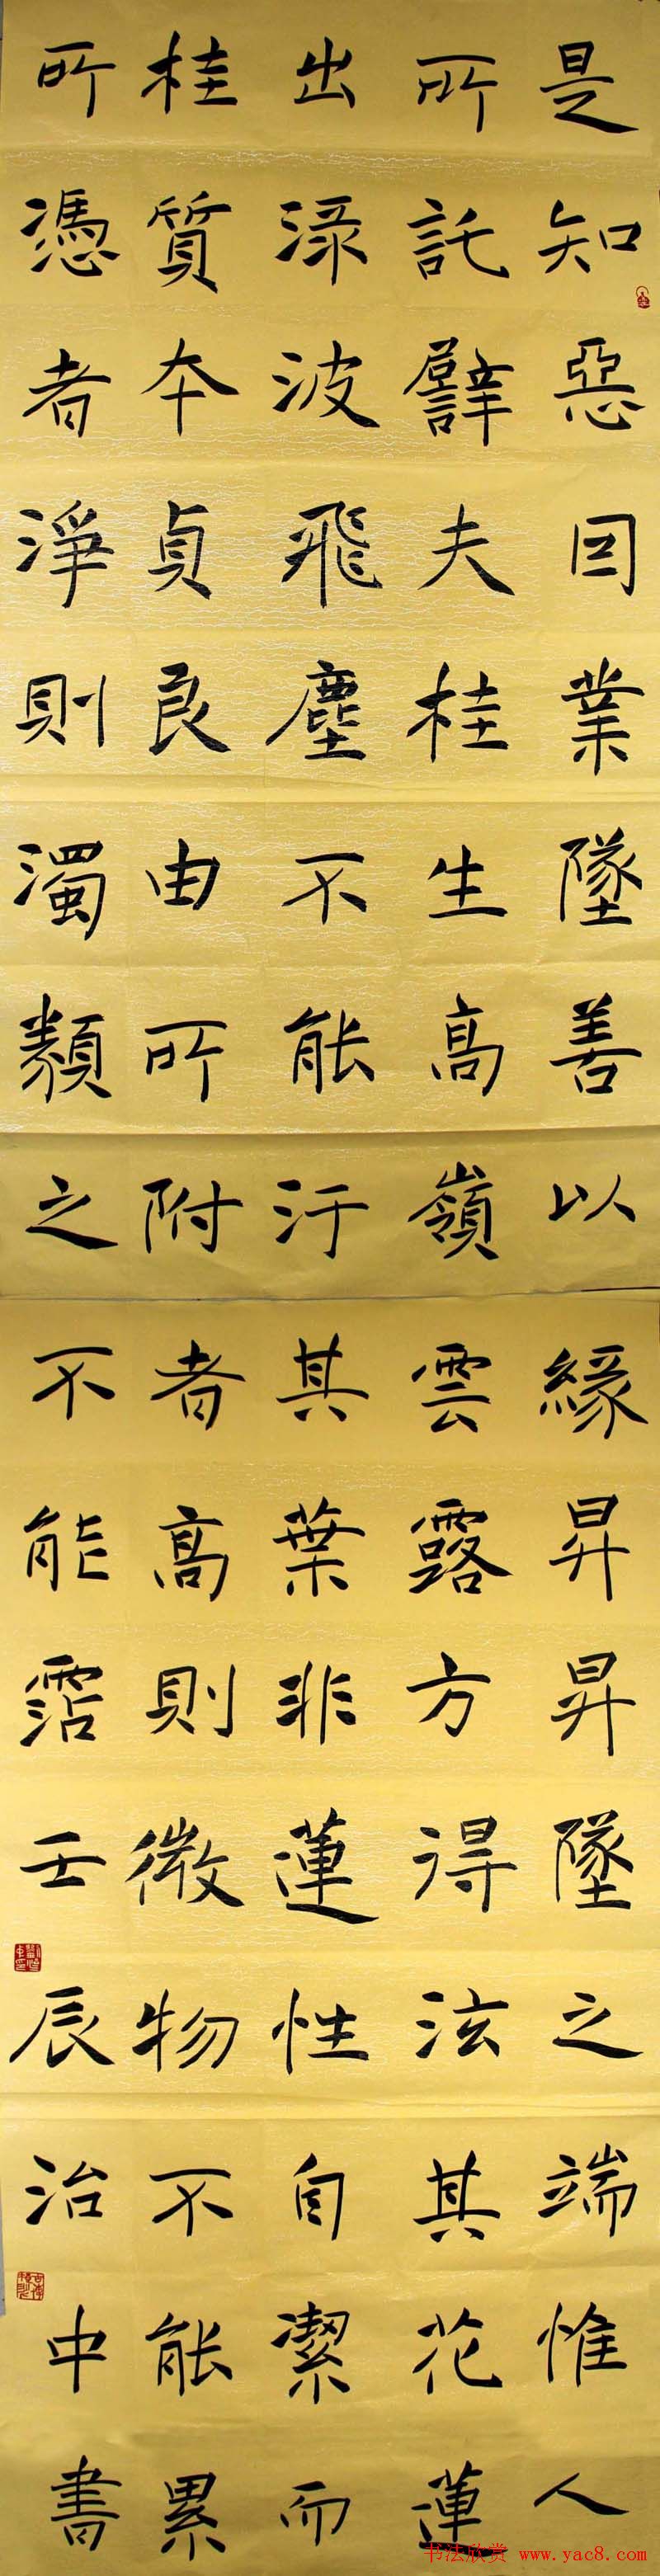 是知惡因業墜善以緣昇昇墜之端惟人
所託譬夫桂生高嶺雲露方得泫其花蓮
出淥波飛塵不能汙其葉非蓮性自潔而
桂質本貞良由所附者高則微物不能累
所憑者淨則濁類之不能霑壬辰治中書
书法欣赏 www.yac8.com